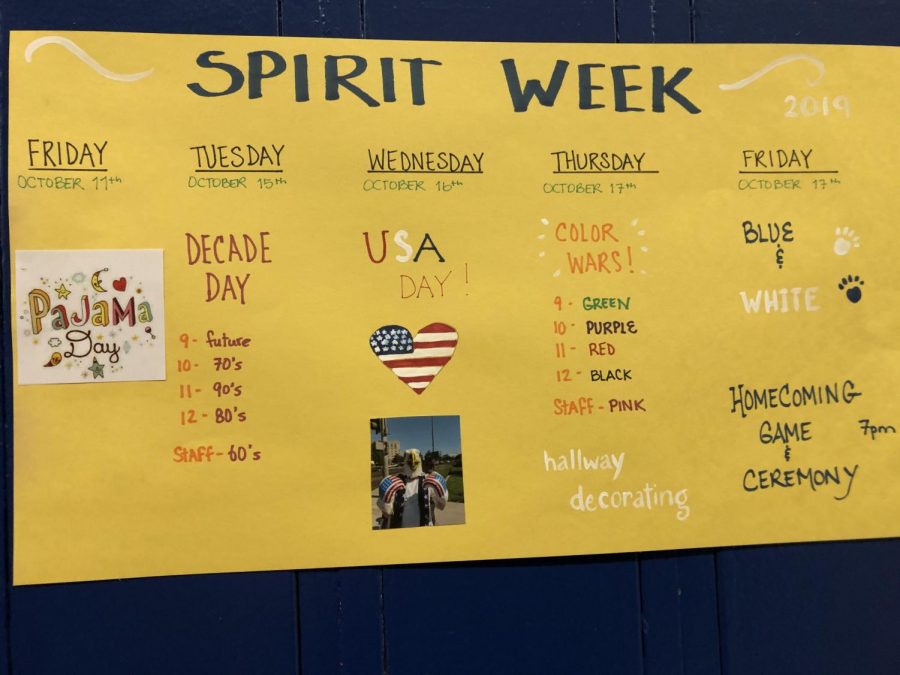 SPIRIT WEEK
2019
FRIDAY
OCTOBER 11th
PaJaMa
Day
TUESDAY
OCTOBER 15th
DECADE
DAY
9- future
10- 70's
11- 90's
12- 80's
Staff- 60's
WEDNESDAY
OCTOBER 16th
USA
DAY!
THURSDAY
OCTOBER 17th
COLOR
WARS!
9- GREEN
10- PURPLE
11- RED
12- BLACK
Staff- PINK
hallway
decorating
FRIDAY
OCTOBER 17th
BLUE
&
WHITE
HOMECOMING
GAME 7pm
&
CEREMONY